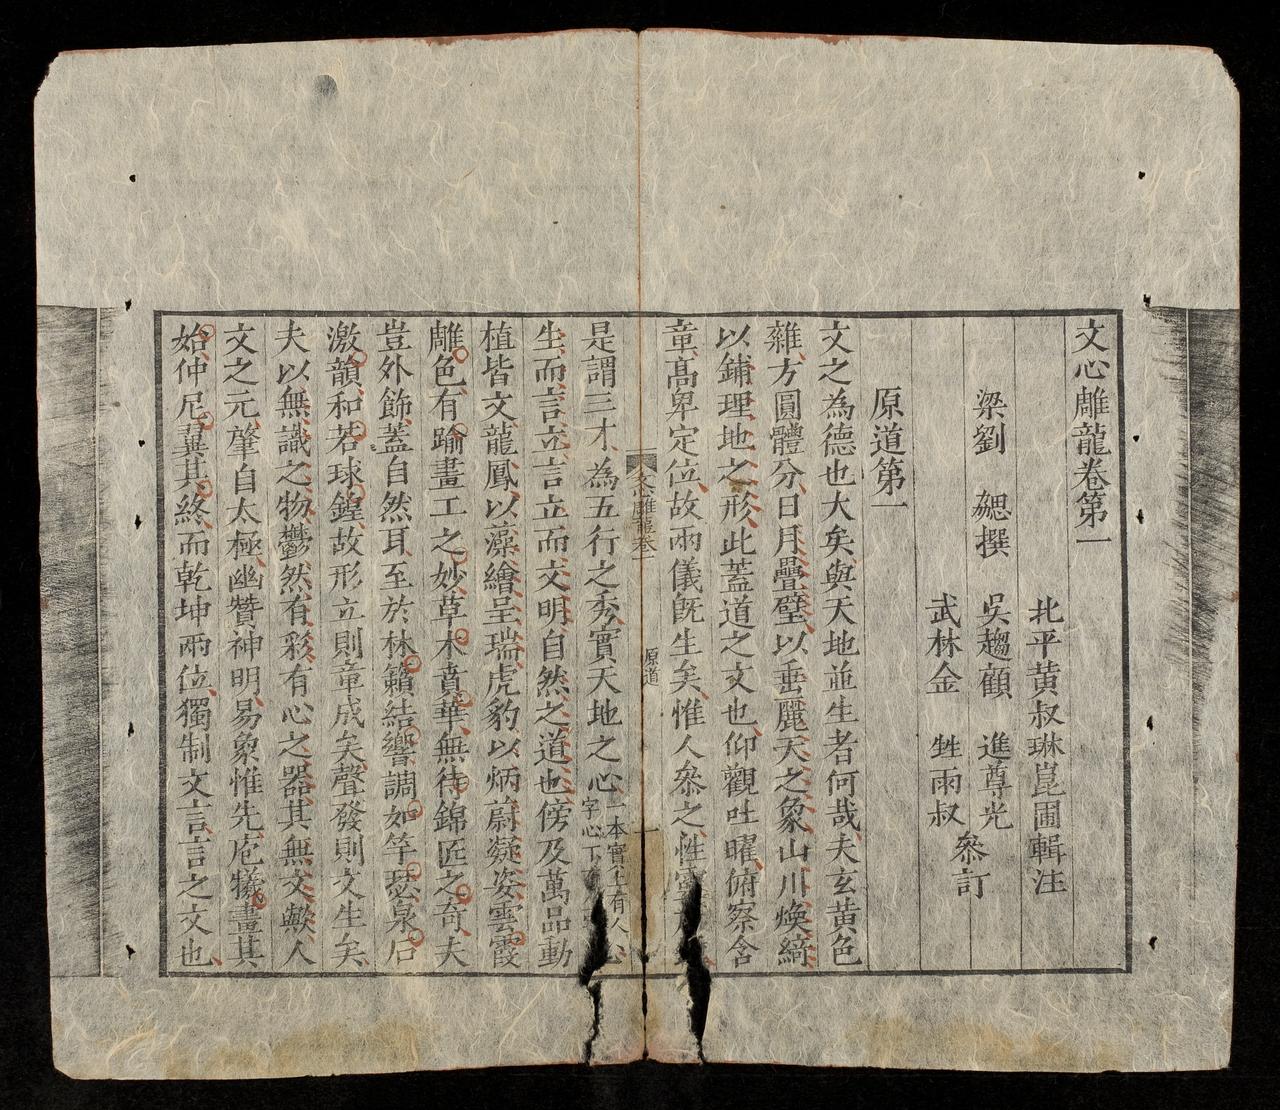 文心雕龍卷第一
北平黃叔琳崑圃輯注
梁劉 勰撰 吳趨顧 進尊光
武林金 甡雨叔
參訂
原道第一
文之為德也大矣與天地並生者何哉夫玄黃色
雜方圓體分日月疊璧以垂麗天之象山川煥綺
以鋪理地之形此蓋道之文也仰觀吐曜俯察含
章高卑定位故兩儀既生矣惟人參之性靈
文心雕龍卷一
原道
一
是謂三才為五行之秀實天地之心
一本實上有人
字心下
生而言立言立而文明自然之道也傍及萬品動
植皆文龍鳳以藻繪呈瑞虎豹以炳蔚凝姿雲霞
雕色有踰畫工之妙草木賁華無待錦匠之奇夫
豈外飾蓋自然耳至於林籟結響調如竽瑟泉石
激韻和若球鍠故形立則章成矣聲發則文生矣
夫以無識之物鬱然有彩有心之器其無文歟人
文之元肇自太極幽贊神明易象惟先庖犧畫其
始仲尼翼其終而乾坤兩位獨制文言言之文也